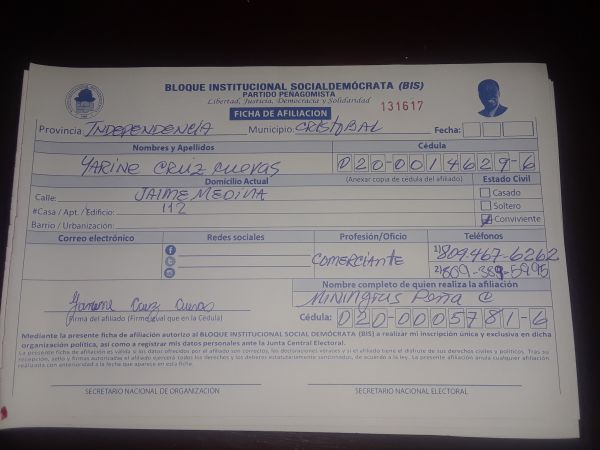 BLOQUE INSTITUCIONAL SOCIALDEMÓCRATA (BIS)
PARTIDO PEÑAGOMISTA
Libertad, Justicia, Democracia y Solidaridad
FICHA DE AFILIACION
131617
Provincia: INDEPENDENCIA Municipio: CRISTOBAL Fecha:
Nombres y Apellidos Cédula
YARINE CRUZ CUEVAS 020-0014629-6
Domicilio Actual (Anexar copia de cédula del afiliado) Estado Civil
Calle: JAIME MEDINA Casado
#Casa / Apt. / Edificio: 112 Soltero
Barrio / Urbanización: Conviviente
Correo electrónico Redes sociales Profesión/Oficio Teléfonos
COMERCIANTE 1) 809-467-6262
2) 809-389-5995
Nombre completo de quien realiza la afiliación
Peña
Cruz Cuevas
Firma del afiliado (Firma igual que en la Cédula) Cédula: 020-0005781-6
Mediante la presente ficha de afiliación autorizo al BLOQUE INSTITUCIONAL SOCIAL DEMÓCRATA (BIS) a realizar mi inscripción única y exclusiva en dicha
organización política, así como a registrar mis datos personales ante la Junta Central Electoral.
La presente ficha de afiliación es válida si los datos ofrecidos por el afiliado son correctos, las declaraciones veraces y si el afiliado tiene el disfrute de sus derechos civiles y políticos. Tras su
recepción, sello y firmas autorizadas el afiliado ejercerá todos los derechos y los deberes estatutariamente consignados, de acuerdo a la ley. La presente afiliación anula cualquier afiliación
realizada con anterioridad a la fecha que aparece en esta ficha.
SECRETARIO NACIONAL DE ORGANIZACIÓN SECRETARIO NACIONAL ELECTORAL